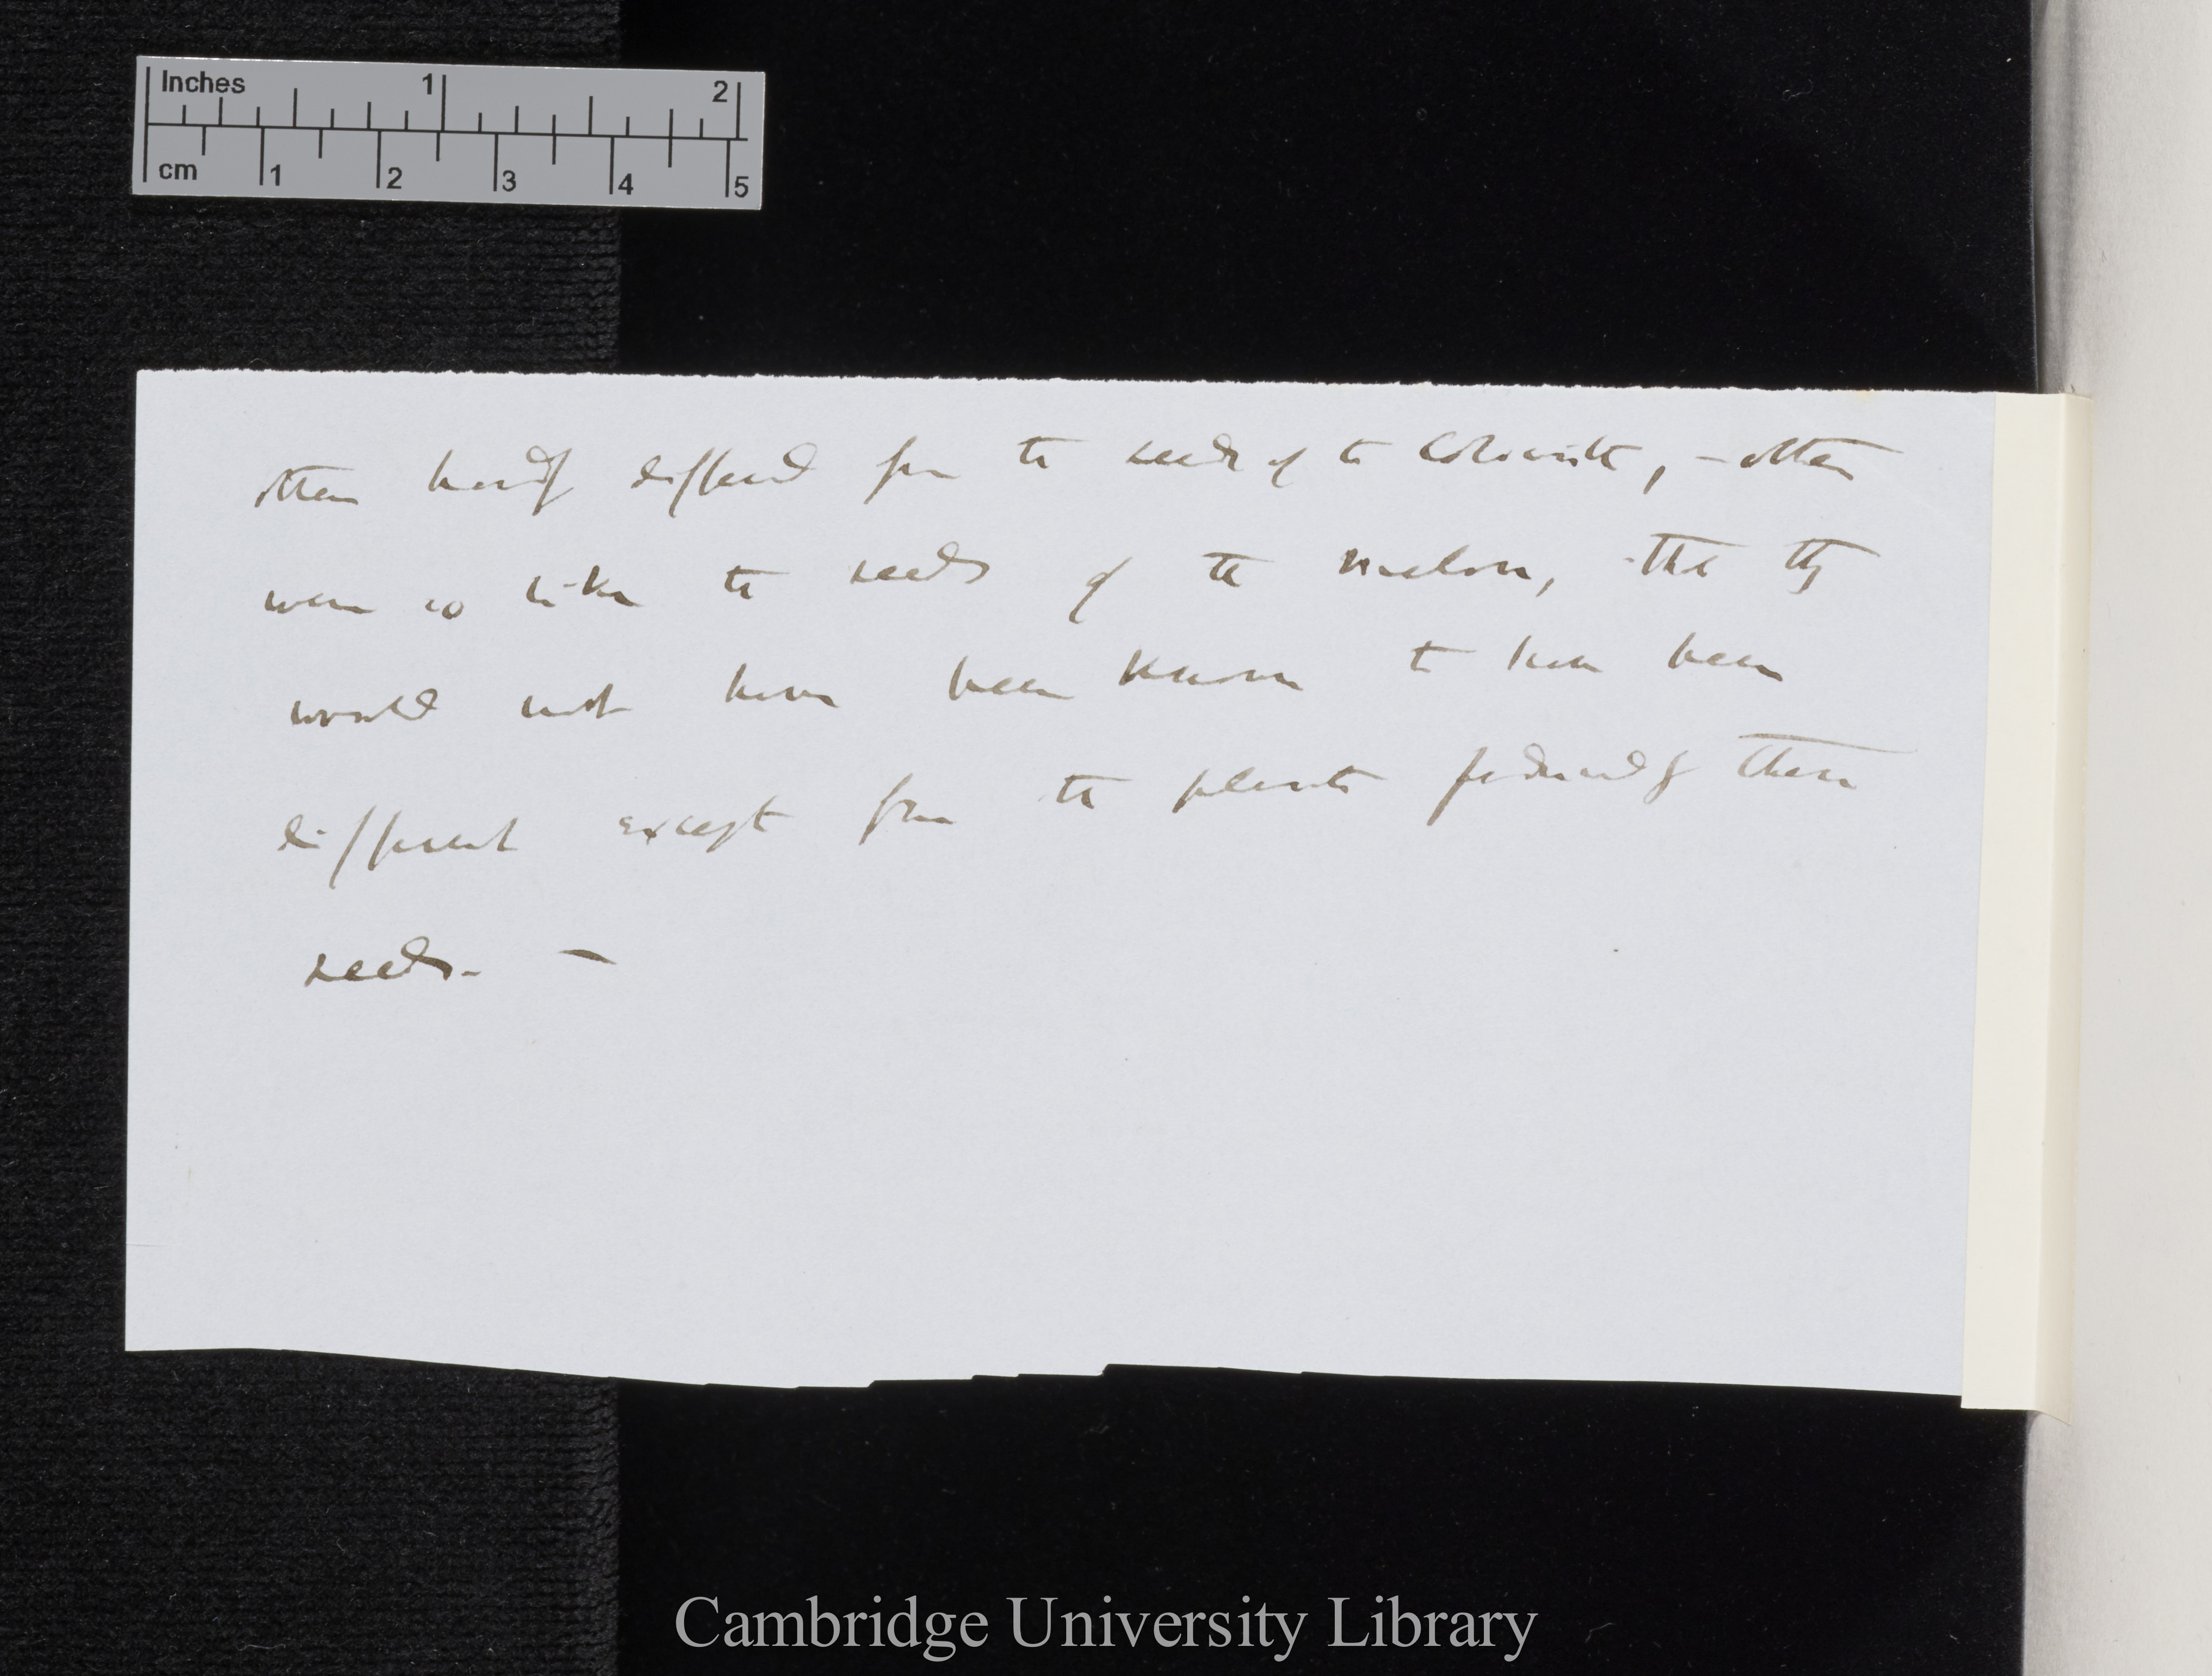 Inches 1 2
cm 1 2 3 4 5
others hardly differed from the seeds of the Colocinth, – others
were so like the seeds of the melon, that they
would not have been known to have been
different except from the plants produced by these
seeds. —
Cambridge University Library